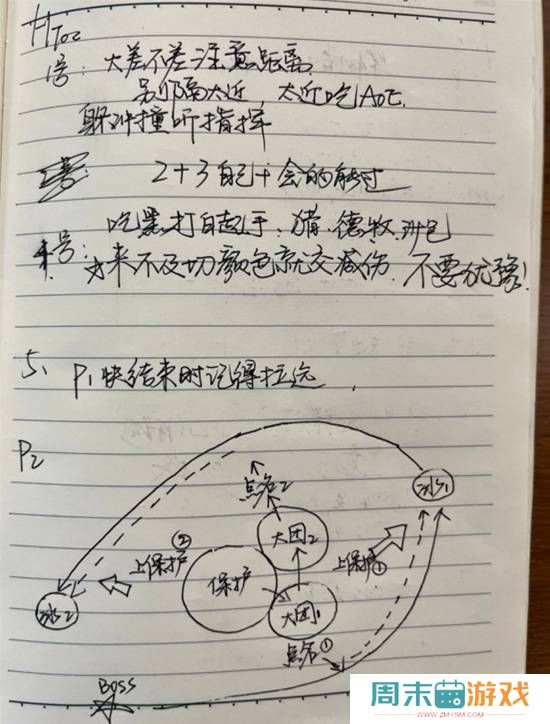 HToc
1号: 大差不差注意距离
别隔太近, 太近吃AOE.
躲冲撞听指挥
2+3 自己十会的能过
吃黑打白起手, 猎、德、牧
4号: 来不及切颜色就交减伤. 不要犹豫!
5、P1快结束时记得拉远.
P2
点名2
冰1
大团2
② 上保护
上保护 ①
保护
大团1
冰2
点名①
BOSS
周末游戏
WWW.ZMYSM.COM